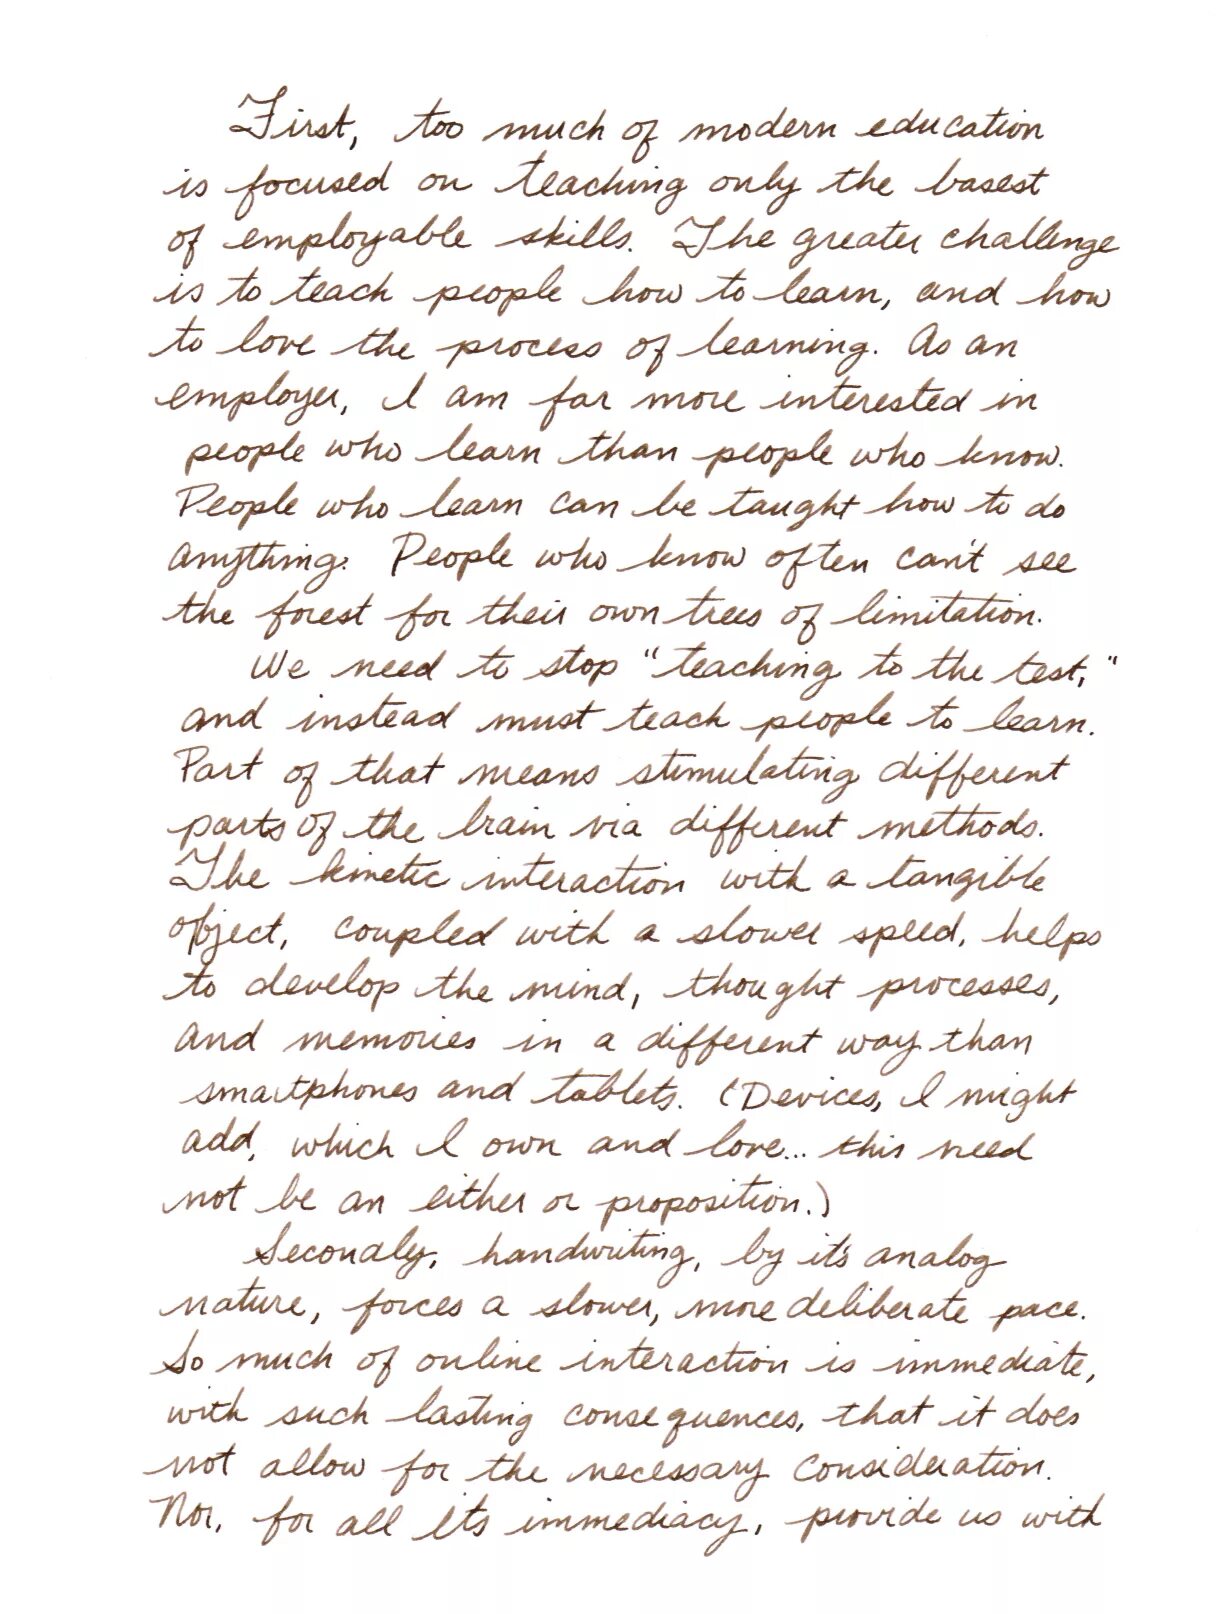 First, too much of modern education
is focused on teaching only the basest
of employable skills. The greater challenge
is to teach people how to learn, and how
to love the process of learning. As an
employer, I am far more interested in
people who learn than people who know.
People who learn can be taught how to do
anything. People who know often can't see
the forest for their own trees of limitation.
We need to stop "teaching to the test,"
and instead must teach people to learn.
Part of that means stimulating different
parts of the brain via different methods.
The kinetic interaction with a tangible
object, coupled with a slower speed, helps
to develop the mind, thought processes,
and memories in a different way than
smartphones and tablets. (Devices, I might
add, which I own and love... this need
not be an either or proposition.)
Secondly, handwriting, by it's analog
nature, forces a slower, more deliberate pace.
So much of online interaction is immediate,
with such lasting consequences, that it does
not allow for the necessary consideration.
Nor, for all it's immediacy, provide us with